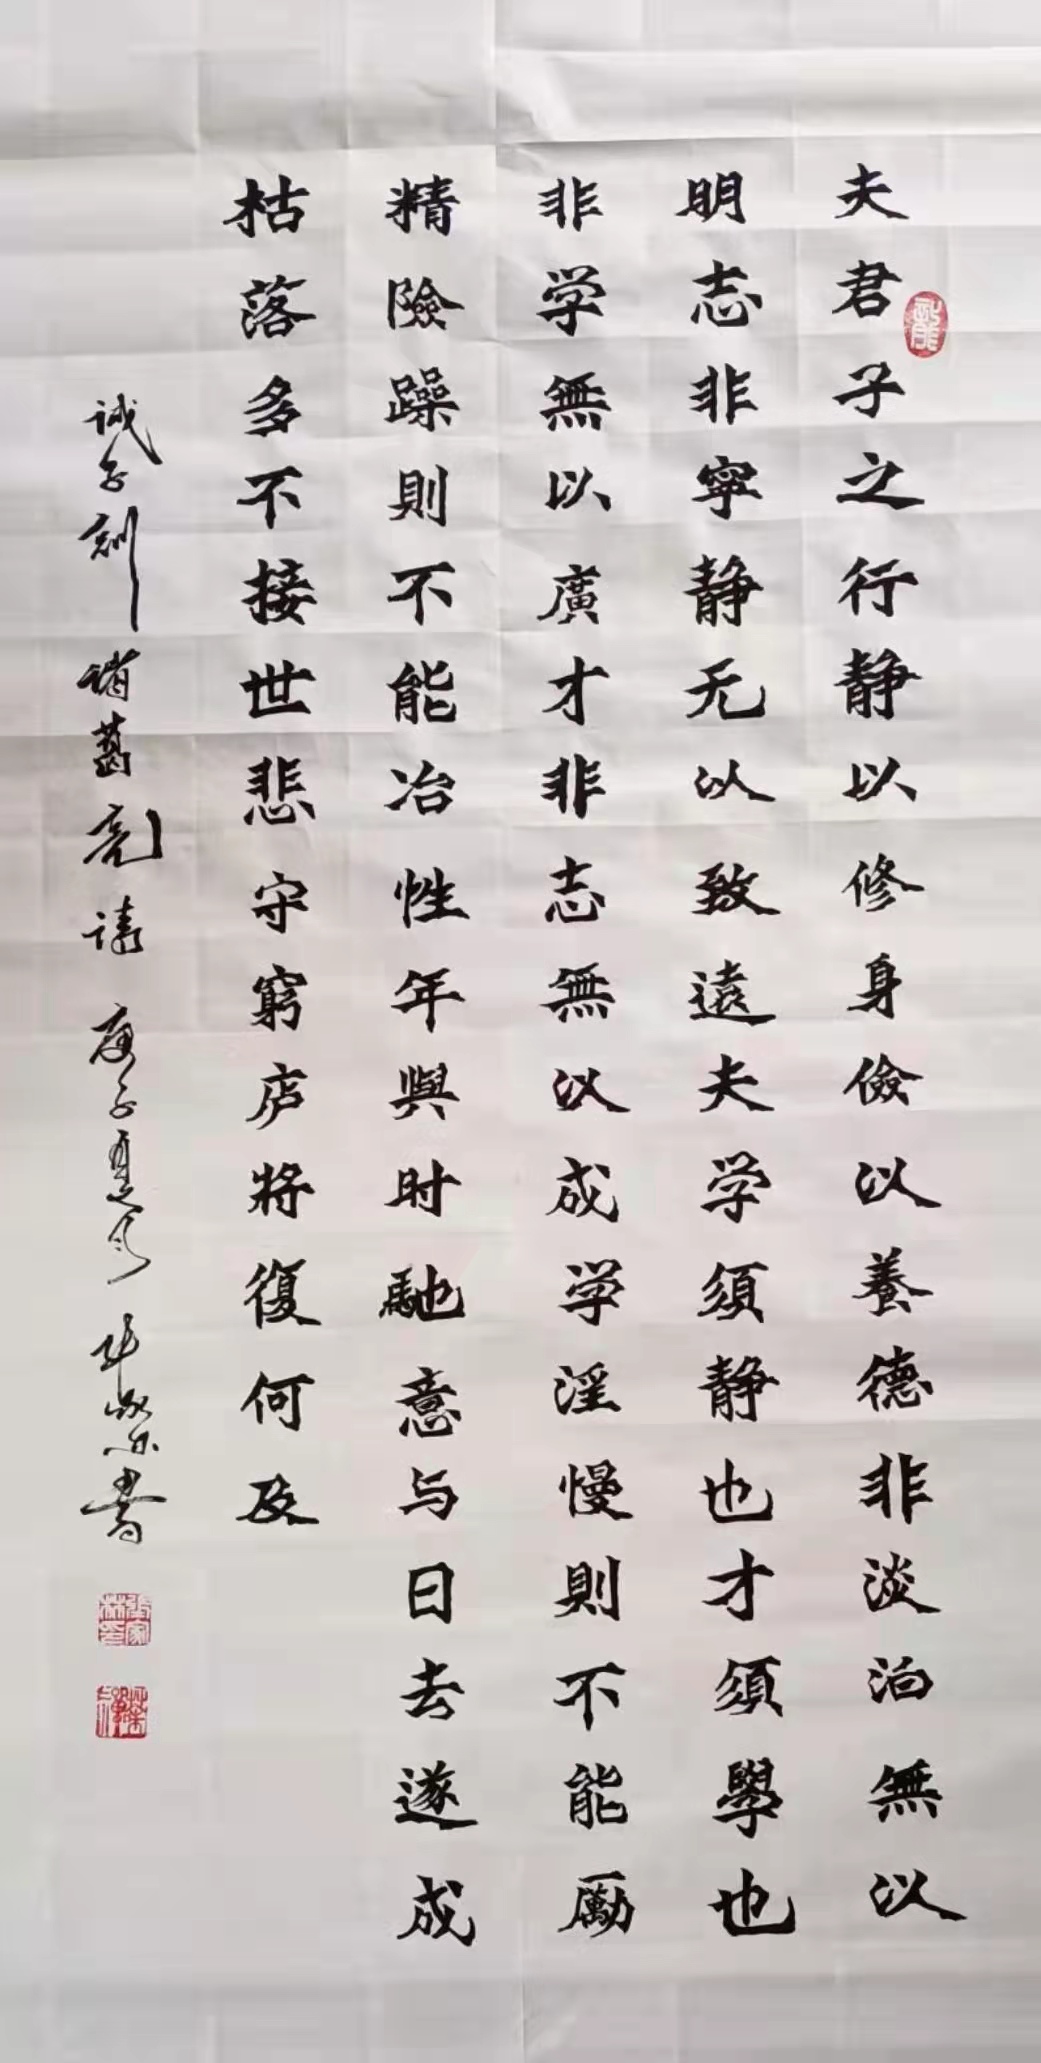 夫君子之行静以修身儉以養德非淡泊無以
明志非寧静无以致遠夫学須静也才須學也
非学無以廣才非志無以成学淫慢則不能勵
精險躁則不能冶性年與时馳意与日去遂成
枯落多不接世悲守窮庐將復何及
诫子訓 诸葛亮 庚子 书